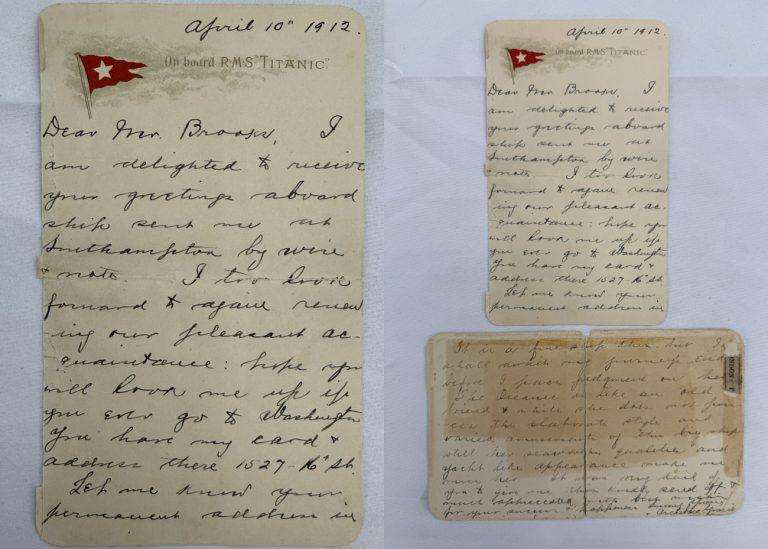 April 10" 1912.
On board R.M.S. "TITANIC".
Dear Mr. Brooks, I
am delighted to receive
your greetings aboard
ship sent me at
Southampton by wire
& note. I too look
forward to again renew
ing our pleasant ac-
quaintance: hope you
will look me up if
you ever go to Washington
You have my card &
address there 1527-16" St.
Let me know your
permanent address in
April 10" 1912.
On board R.M.S. "TITANIC".
Dear Mr. Brooks, I
am delighted to receive
your greetings aboard
ship sent me at
Southampton by wire
& note. I too look
forward to again renew
ing our pleasant ac-
quaintance: hope you
will look me up if
you ever go to Washington
You have my card &
address there 1527-16" St.
Let me know your
permanent address in
It is a fine ship but I
shall await my journeys end
before I pass judgment on her
The Oceanic is like an old
friend & while she does not poss
ess the elaborate style and
varied amusements of this big ship
still her seaworthy qualities and
yacht like appearance make me
miss her. It was very kind of
you to give me this kindly send off &
much appreciated with best wishes
for your success & happiness
Archibald Gracie